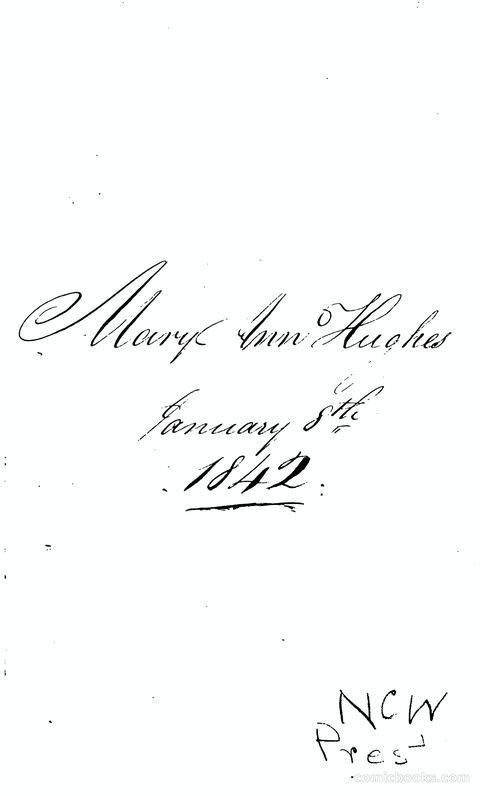 Mary Ann Hughes
January 8th
1842.
NCW
Pres
comicbooks.com